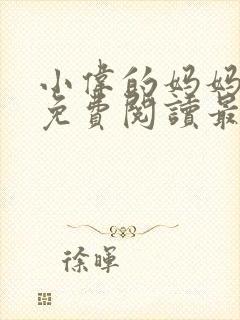 小偉的妈妈
免費閱讀最
徐暉